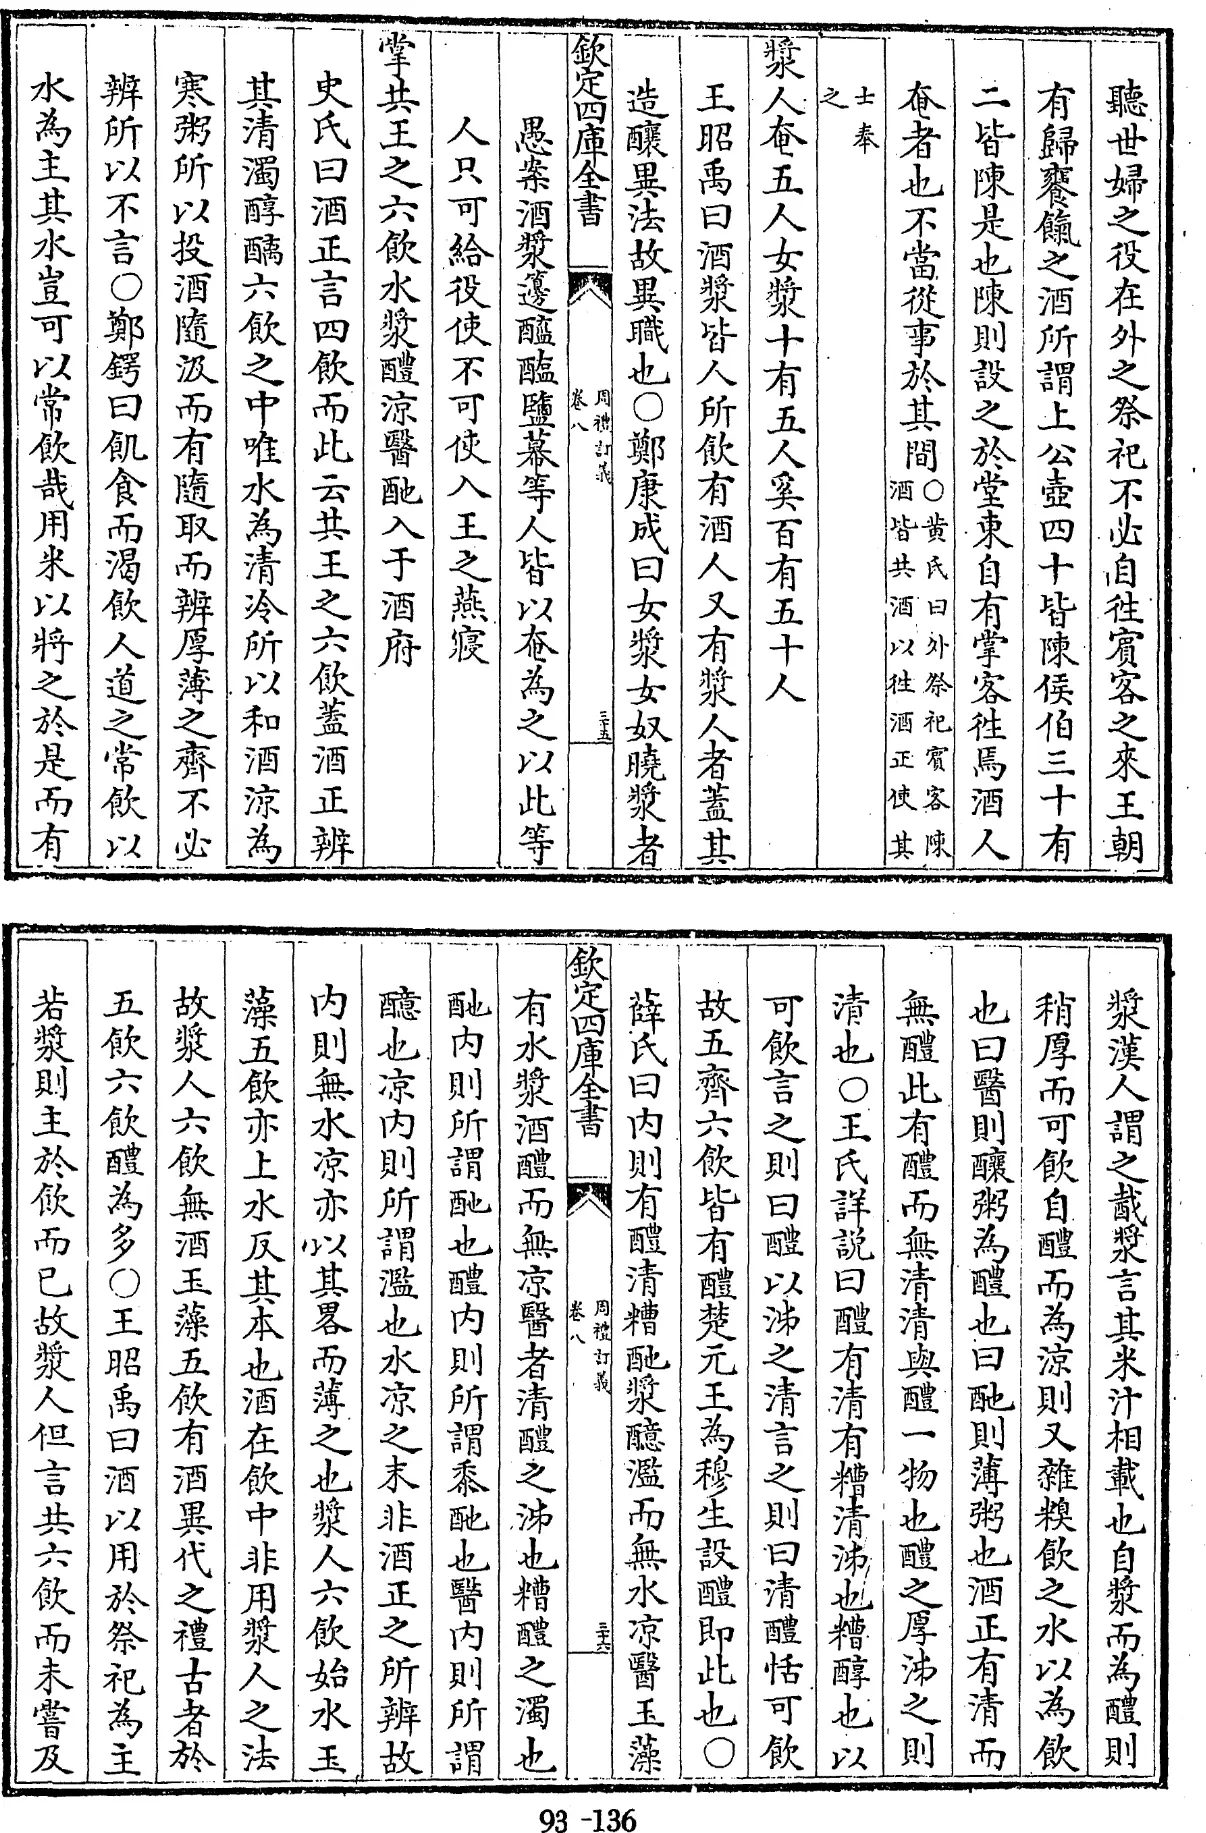 聽世婦之役在外之祭祀不必自徃賔客之來王朝
有歸饔餼之酒所謂上公壺四十皆陳侯伯三十有
二皆陳是也陳則設之於堂東自有掌客徃焉酒人
奄者也不當從事於其間○黄氏曰外祭祀賔客陳酒皆共酒以徃酒正使其
士奉之
漿人奄五人女漿十有五人奚百有五十人
王昭禹曰酒漿皆人所飲有酒人又有漿人者蓋其
造釀異法故異職也○鄭康成曰女漿女奴曉漿者
欽定四庫全書 周禮訂義卷八 三十五
愚案酒漿籩醢醯鹽幕等人皆以奄為之以此等
人只可給役使不可使入王之燕寢
掌共王之六飲水漿醴凉醫酏入于酒府
史氏曰酒正言四飲而此云共王之六飲蓋酒正辨
其清濁醇醨六飲之中唯水為清冷所以和酒凉為
寒粥所以投酒隨汲而有隨取而辨厚薄之齊不必
辨所以不言○鄭鍔曰飢食而渴飲人道之常飲以
水為主其水豈可以常飲哉用米以將之於是而有
漿漢人謂之酨漿言其米汁相載也自漿而為醴則
稍厚而可飲自醴而為凉則又雜糗飲之水以為飲
也曰醫則釀粥為醴也曰酏則薄粥也酒正有清而
無醴此有醴而無清清與醴一物也醴之厚泲之則
清也○王氏詳説曰醴有清有糟清泲也糟醇也以
可飲言之則曰醴以泲之清言之則曰清醴恬可飲
故五齊六飲皆有醴楚元王為穆生設醴即此也○
薛氏曰内則有醴清糟酏漿醷濫而無水凉醫玉藻
欽定四庫全書 周禮訂義卷八 三十六
有水漿酒醴而無凉醫者清醴之泲也糟醴之濁也
酏内則所謂酏也醴内則所謂黍酏也醫内則所謂
醷也凉内則所謂濫也水凉之末非酒正之所辨故
内則無水凉亦以其畧而薄之也漿人六飲始水玉
藻五飲亦上水反其本也酒在飲中非用漿人之法
故漿人六飲無酒玉藻五飲有酒異代之禮古者於
五飲六飲醴為多○王昭禹曰酒以用於祭祀為主
若漿則主於飲而已故漿人但言共六飲而未嘗及
93-136